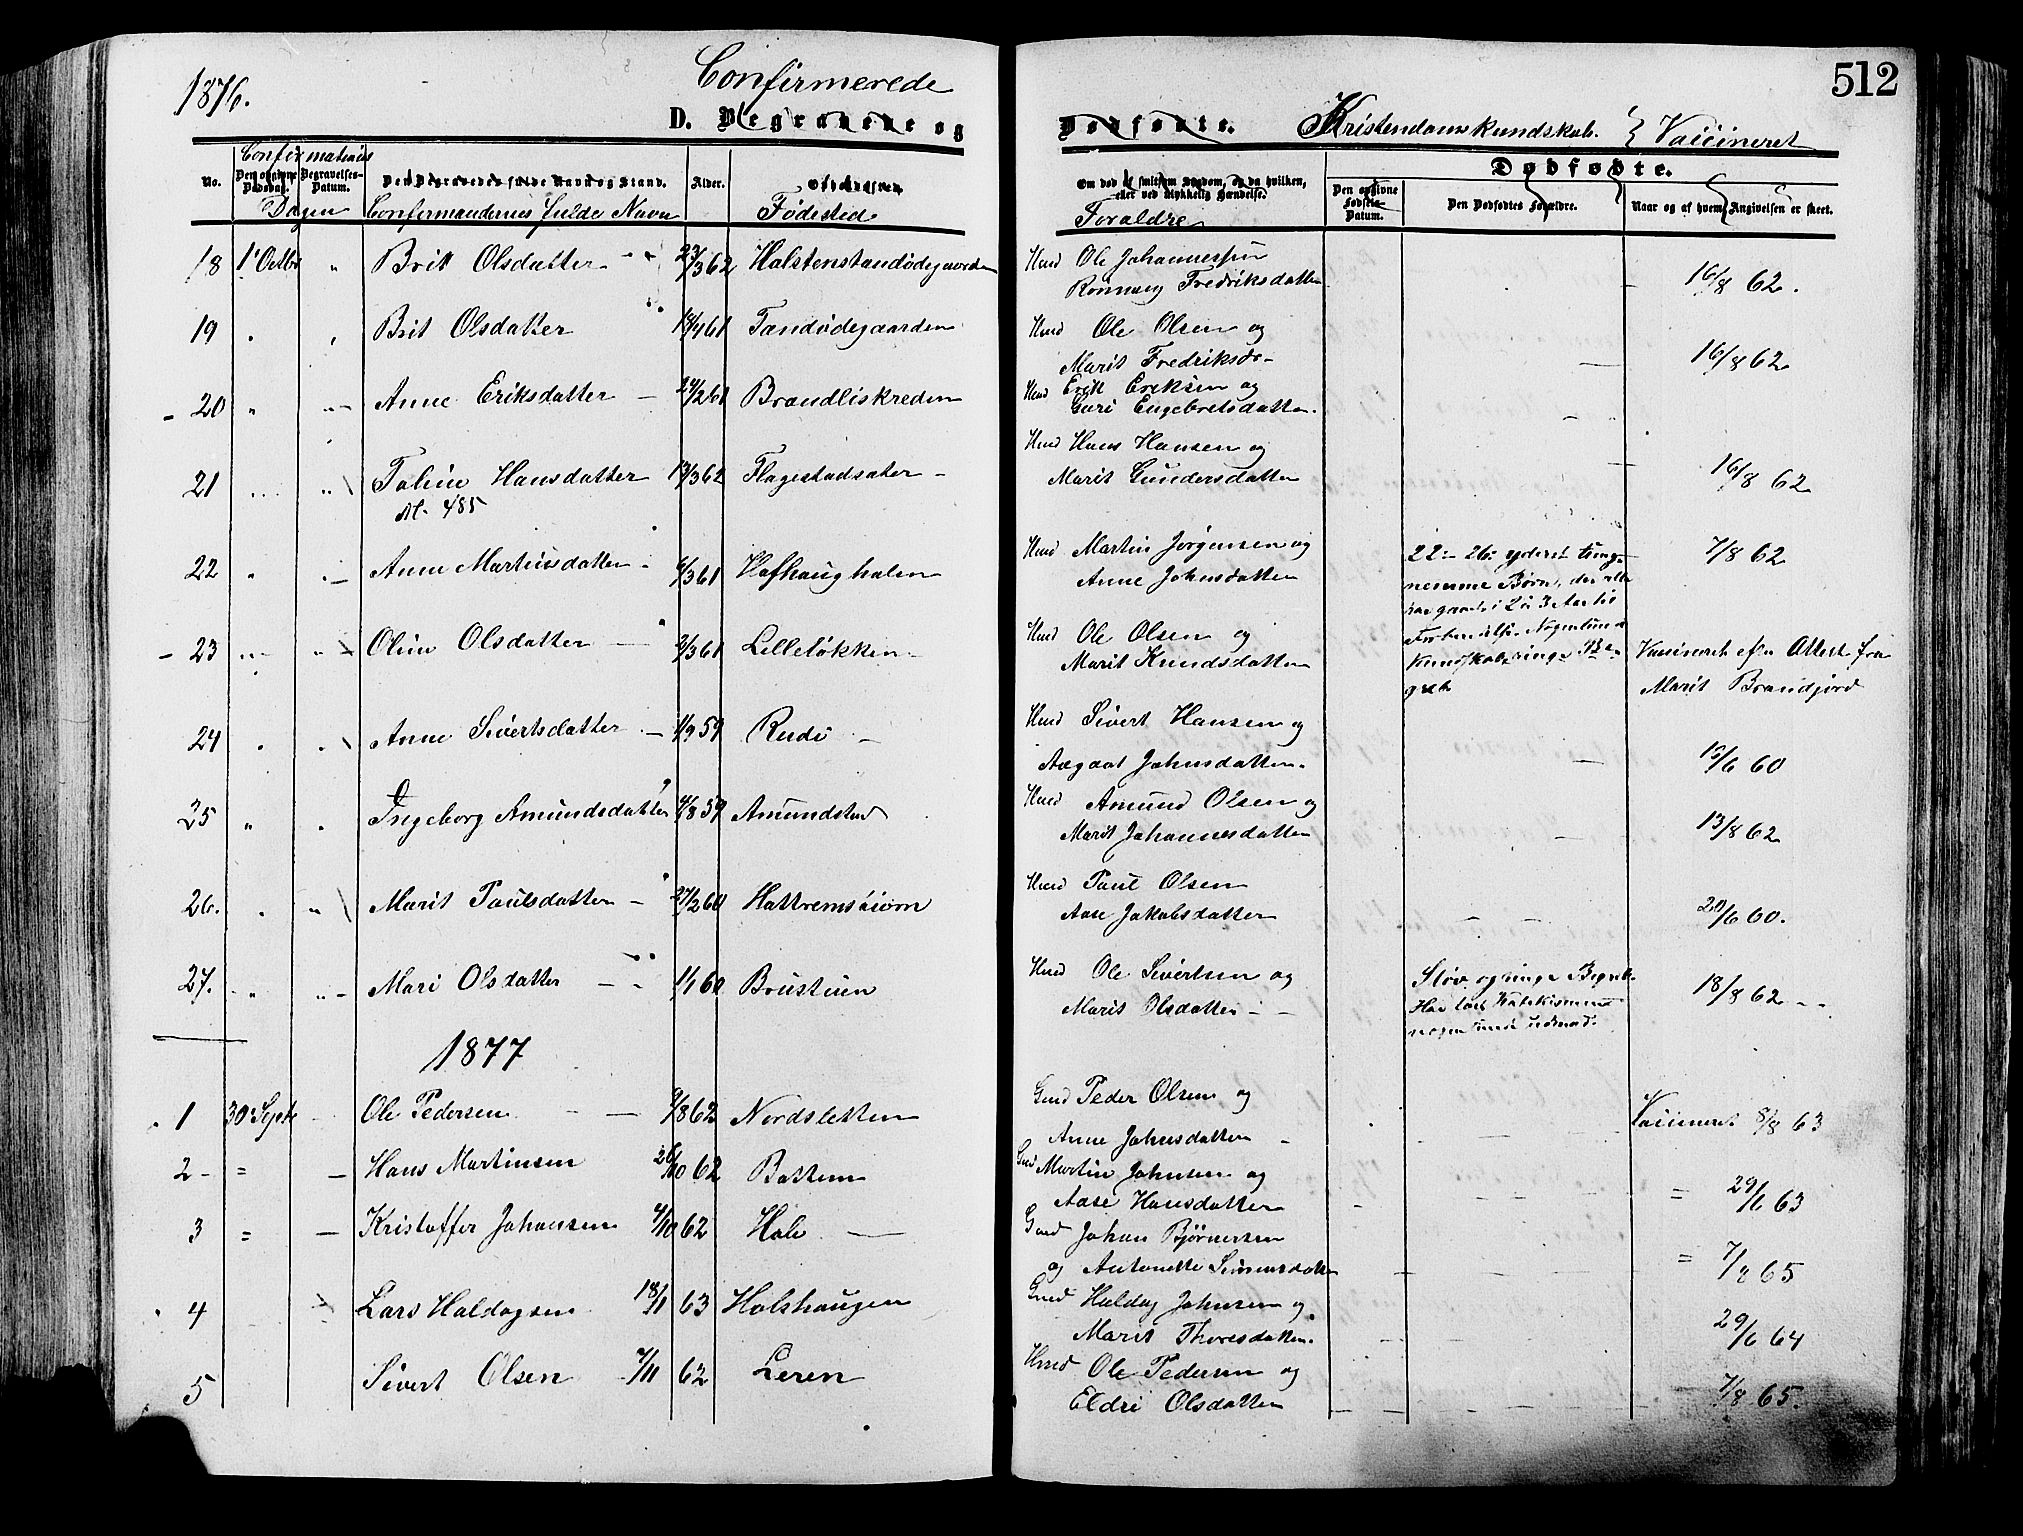 1876.
Confirmerede
512
D. Begravede og
Dødfødte.
Kristendomskundskab. } Vaccineret
No.
Confirmationis
Den opgivne Dødsdag.
Begravelses-Datum.
Dagen
Den Begravedes fulde Navn og Stand.
Confirmandernes fulde Navn
Alder.
Opholdssted.
Fødested
Om død af smitsom Sygdom, og da hvilken, eller ved ulykkelig Hændelse.
Foraldre
Dødfødte.
Den opgivne Fødsels-Datum.
Den Dødfødtes Forældre.
Naar og af hvem Angivelsen er skeet.
18 1' Octbr " Brit Olsdatter 23/3 62 Holstenstandødegaarden Hmd Ole Johannessen
Rønnaug Fredriksdatter 16/8 62.
19 Brit Olsdatter 61 Tandødegaarden Hmd Ole Olsen og
Marit Fredriksd- 16/8 62
20 " Anne Eriksdatter 24/2 61 Brandliskreden Hmd Erik Eriksen og
Guri Engebretsdatter.
21 Hansdatter 13/3 62 Flagestadsæter Hmd Hans Hansen og
Marit Gundersdatter 16/8 62
N. 485
22 Anne Martinsdatter 6/3 61 Hafhaughalen Hmd Martin Jørgensen og
Anne Johnsdatter 22- 26- yderst tung- 7/8 62
nemme Børn, der alle
har gaaet i 2 a 3 Aar til
23 Oline Olsdatter 2/3 61 Lilleløkken Hmd Ole Olsen og
Marit Knudsdatter Forberedelse. Nogenlunde
Kundskab, ringe Be-
greb
Vaccineret efter Attest fra
Marit Brandjord
24 Anne Sivertsdatter 1/9 59 Rudi Hmd Sivert Hansen og
Aagaat Johnsdatter. 15/6 60
25 " Ingeborg Amundsdatter 4/8 59 Amundstad Hmd Amund Olsen og
Marit Johannesdatter 13/8 62
26. Marit Paulsdatter 27/2 60 Hattremsøien Hmd Paul Olsen
Aase Jakobsdatter 20/6 60.
27. " Mari Olsdatter 1/1 60 Brustuen Hmd Ole Sivertsen og
Marit Olsdatter Sløv og ringe Begreb. 18/8 62
Har læst Katekismus
nogenlunde udenad.
1877
1 30 Septbr Ole Pedersen 9/8 62 Nordsletten Gmd Peder Olsen og
Anne Johnsdatter Vaccineret 8/8 63
2 = Hans Martinsen 26/10 62 Battem Gmd Martin Johnsen og
Aase Hansdatter = 29/6 63
3 = Kristoffer Johansen 4/10 62 Hole Gmd Johan Bjørnersen
og Antonette Simensdatter = 7/8 65
4 Lars Haldogsen 18/11 63 Holshaugen Gmd Haldog Johnsen og
Marit Thoresdatter. 29/6 64
5 Sivert Olsen 7/11 62 Leren Hmd Ole Pedersen og
Eldri Olsdatter 7/8 65.